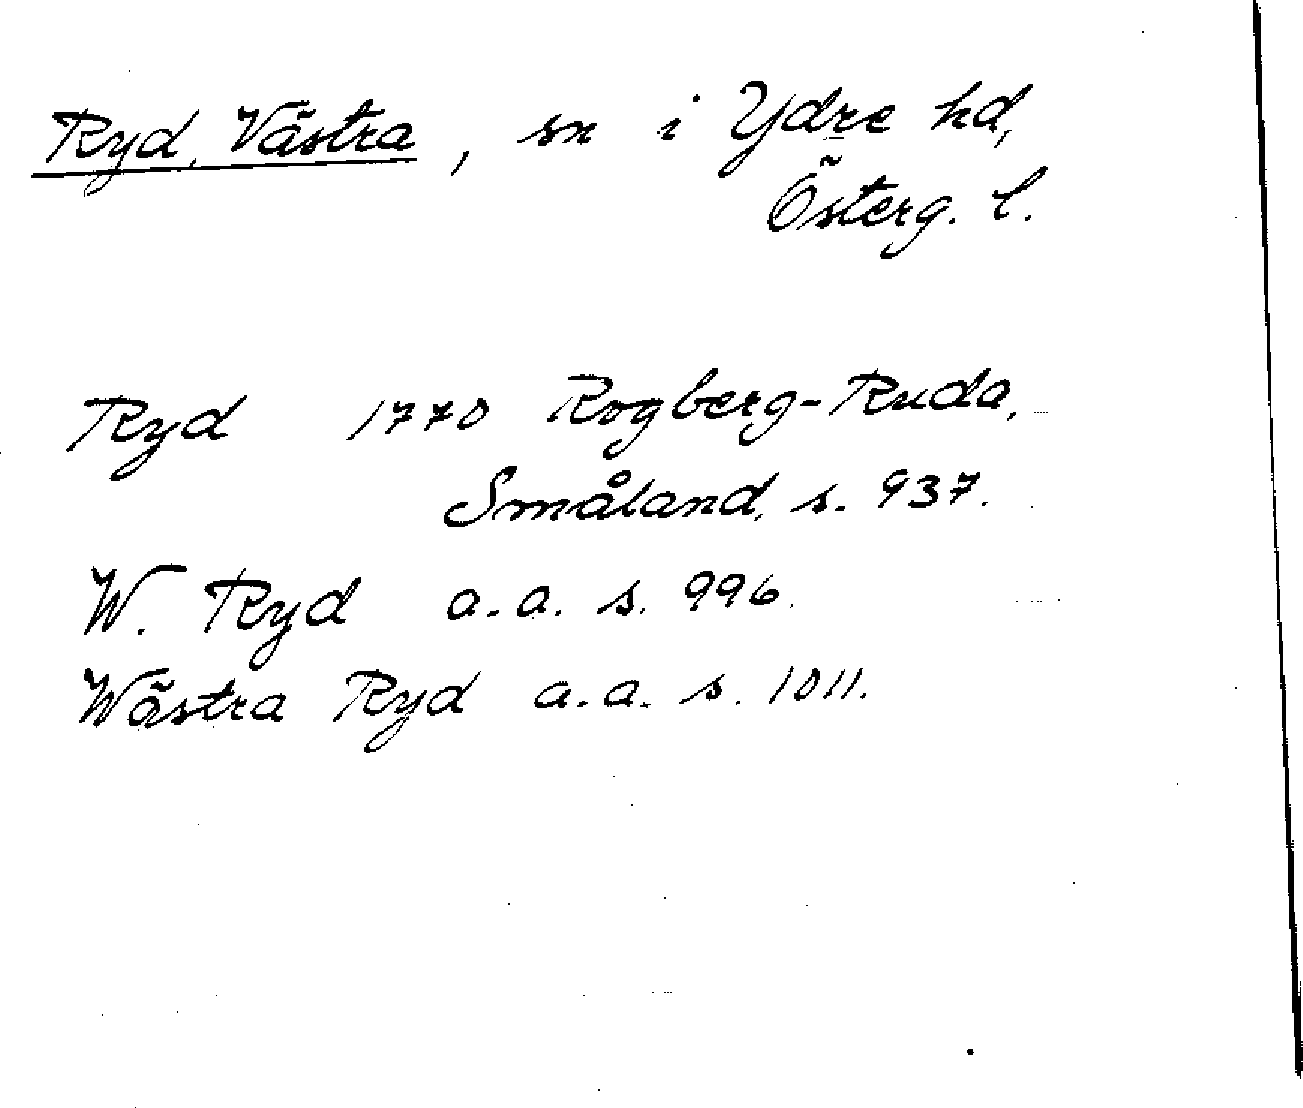 Ryd, Västra, sn i Ydre hd,
Österg. l.
Ryd 1770 Rogberg-Ruda,
Småland, s. 937.
W. Ryd a.a. s. 996.
Wästra Ryd a.a. s. 1011.